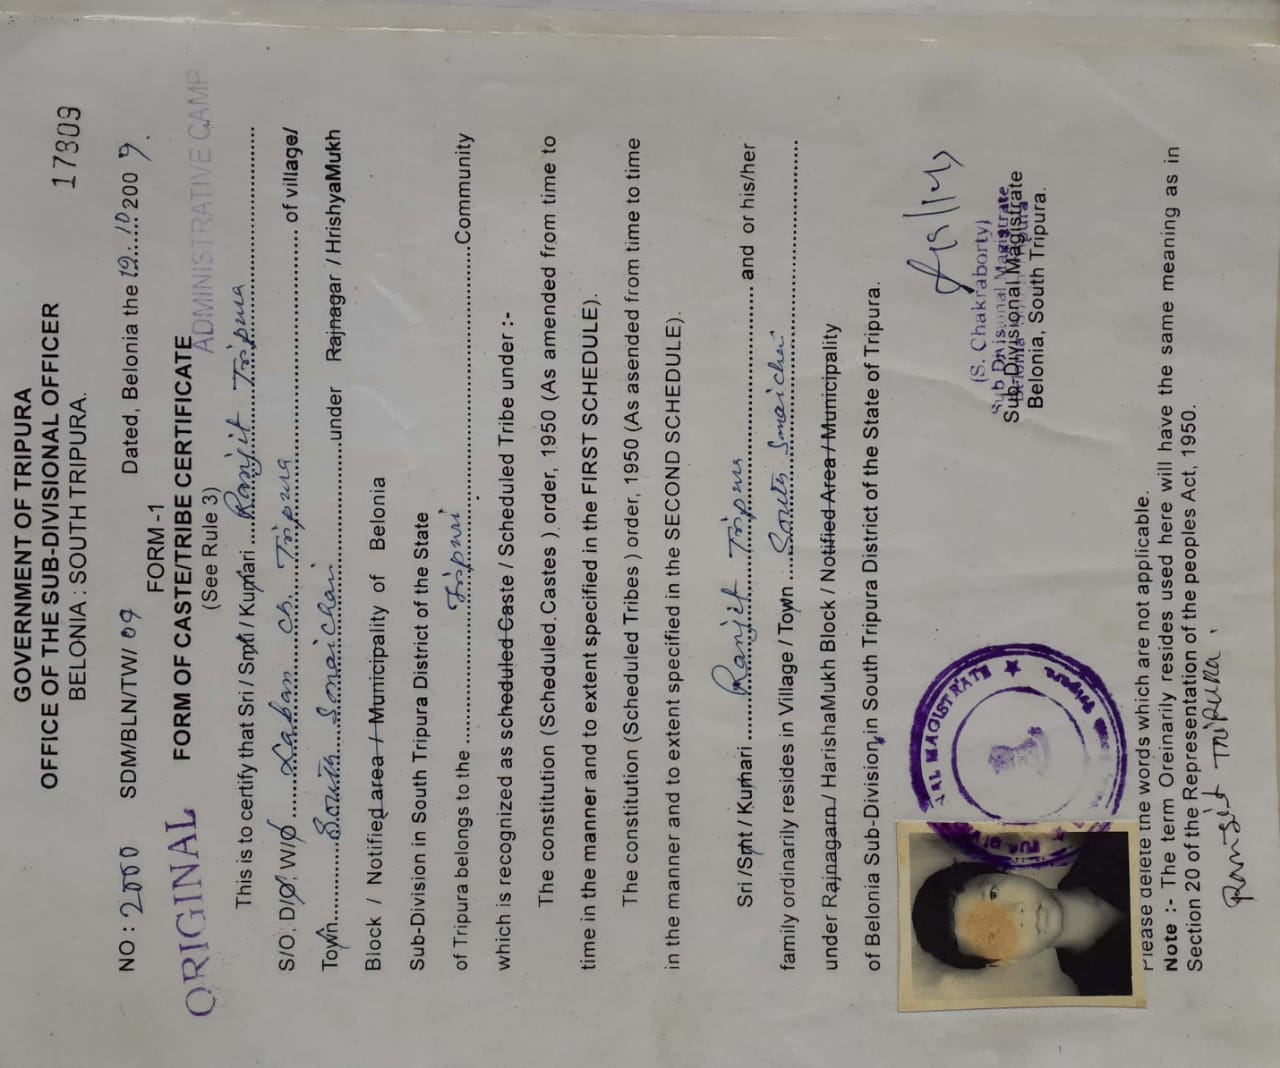 GOVERNMENT OF TRIPURA
OFFICE OF THE SUB-DIVISIONAL OFFICER
BELONIA : SOUTH TRIPURA.
17309
NO : 2000 SDM/BLN/TW/ 09 Dated, Belonia the 19...10 200 9.
FORM -1
ORIGINAL
FORM OF CASTE/TRIBE CERTIFICATE
ADMINISTRATIVE CAMP
(See Rule 3)
This is to certify that Sri / Smti / Kumari ....Ranjit Tripura
S/O, D/O, W/O ...... Laban ch. Tripura ...... of village/
Town............South Sonaichari............under Rajnagar / HrishyaMukh
Block / Notified area / Municipality of Belonia
Sub-Division in South Tripura District of the State
of Tripura belongs to the ............ Tripuri ............Community
which is recognized as scheduled Caste / Scheduled Tribe under :-
The constitution (Scheduled.Castes ) order, 1950 (As amended from time to
time in the manner and to extent specified in the FIRST SCHEDULE).
The constitution (Scheduled Tribes ) order, 1950 (As asended from time to time
in the manner and to extent specified in the SECOND SCHEDULE).
Sri /Smt / Kumari ......Ranjit Tripura ...... and or his/her
family ordinarily resides in Village / Town ....South Sonaichari
under Rajnagarn / HarishaMukh Block / Notified Area / Municipality
of Belonia Sub-Division, in South Tripura District of the State of Tripura.
NAL MAGISTRATE
South Tripura
(S. Chakraborty)
Sub Divisional Magistrate
Sub-Divisional Magistrate
Belonia, South Tripura.
Please delete the words which are not applicable.
Note :- The term Oreinarily resides used here will have the same meaning as in
Section 20 of the Representation of the peoples Act, 1950.
Ranjit TRIPURA.